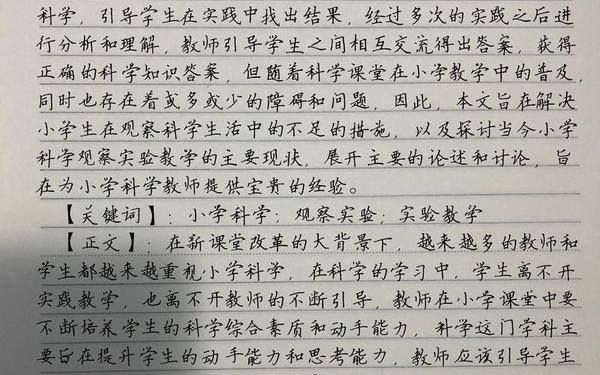 科学，引导学生在实践中找出结果，经过多次的实践之后进
行分析和理解，教师引导学生之间相互交流得出答案，获得
正确的科学知识答案，但随着科学课堂在小学教学中的普及，
同时也存在着或多或少的障碍和问题，因此，本文旨在解决
小学生在观察科学生活中的不足的措施，以及探讨当今小学
科学观察实验教学的主要现状，展开主要的论述和讨论，旨
在为小学科学教师提供宝贵的经验。
【关键词】：小学科学；观察实验；实验教学
【正文】：在新课堂改革的大背景下，越来越多的教师和
学生都越来越重视小学科学，在科学的学习中，学生离不开
实践教学，也离不开教师的不断引导，教师在小学课堂中要
不断培养学生的科学综合素质和动手能力，科学这门学科主
要旨在提升学生的动手能力和思考能力，教师应该引导学生